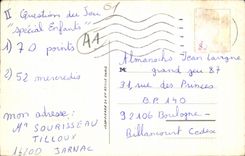 II Questions du Jeu
"spécial Enfants"
1) 70 points
2) 52 mercredis
mon adresse :
Mr SOURISSEAU
TILLOUX
16200 JARNAC
01
A1
Almanachs Jean Lavigne
grand jeu 87
31, rue des Princes
BP 140
92106 Boulogne-
Billancourt Cedex